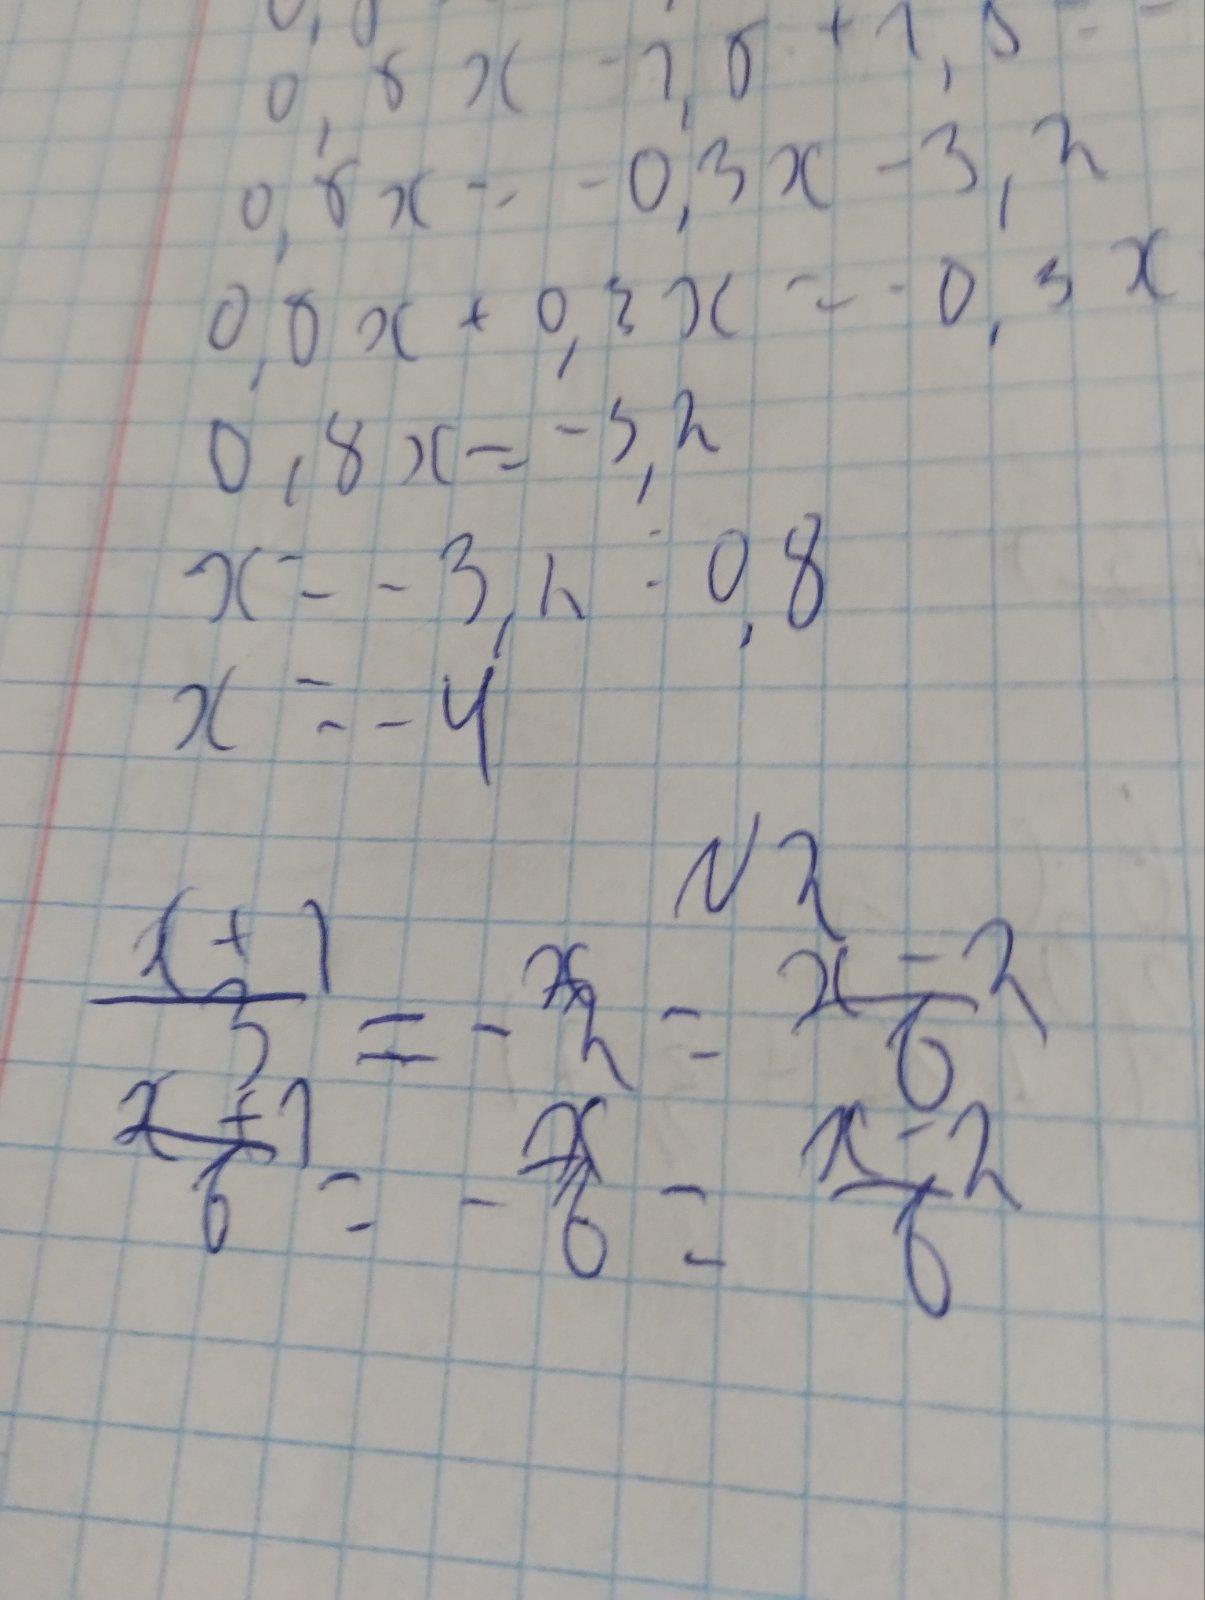 0,5x - 1,5 + 1,5 =
0,5x = -0,3x - 3,2
0,5x + 0,3x = -0,3x
0,8x = -3,2
x = -3,2 : 0,8
x = -4
№2
(x+1)/3 = - x/2 = (x-2)/6
(x+1)/6 = - x/6 = (x-2)/6